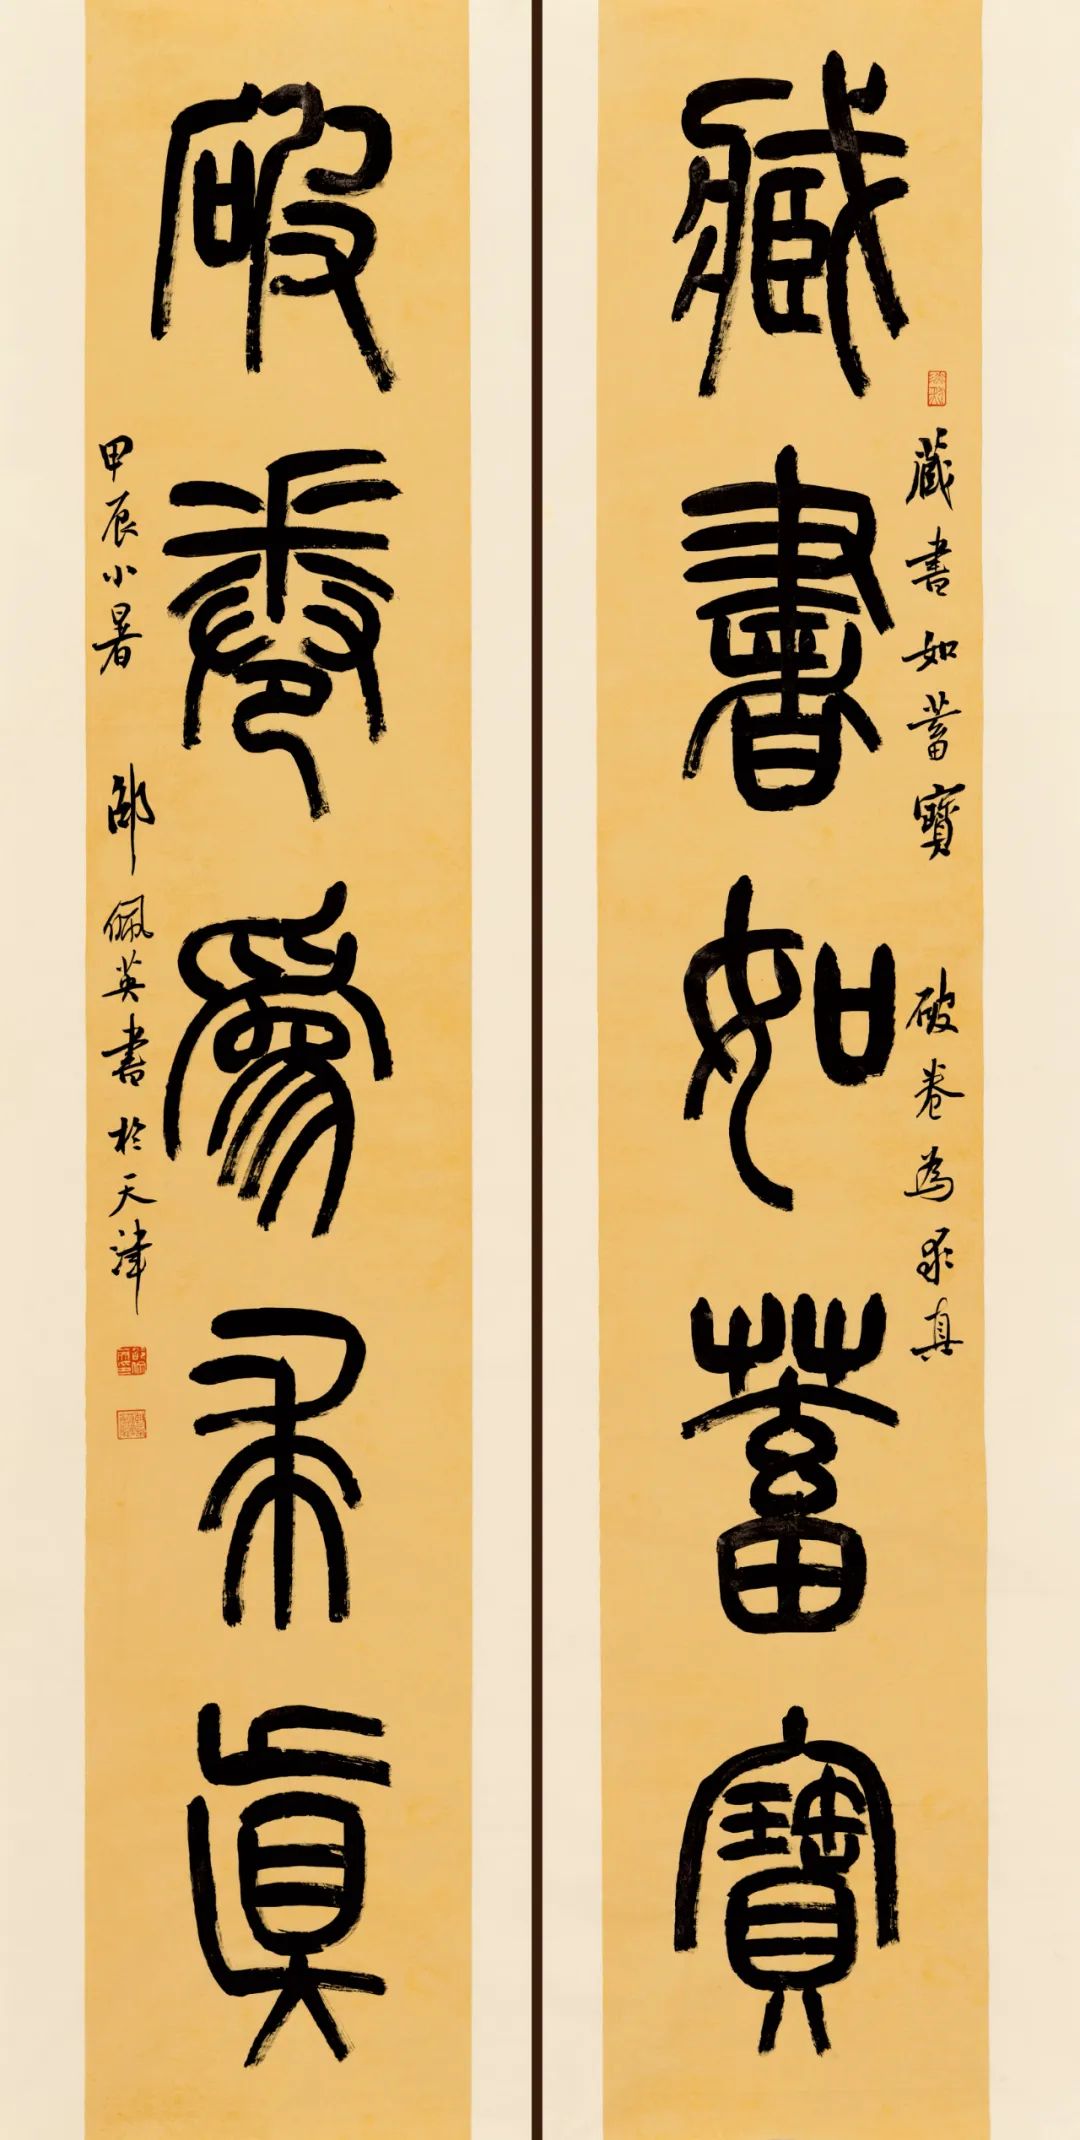 藏書如蓄寶
藏書如蓄寶 破卷為求真
破卷為求真
甲辰小暑 邵佩英書於天津